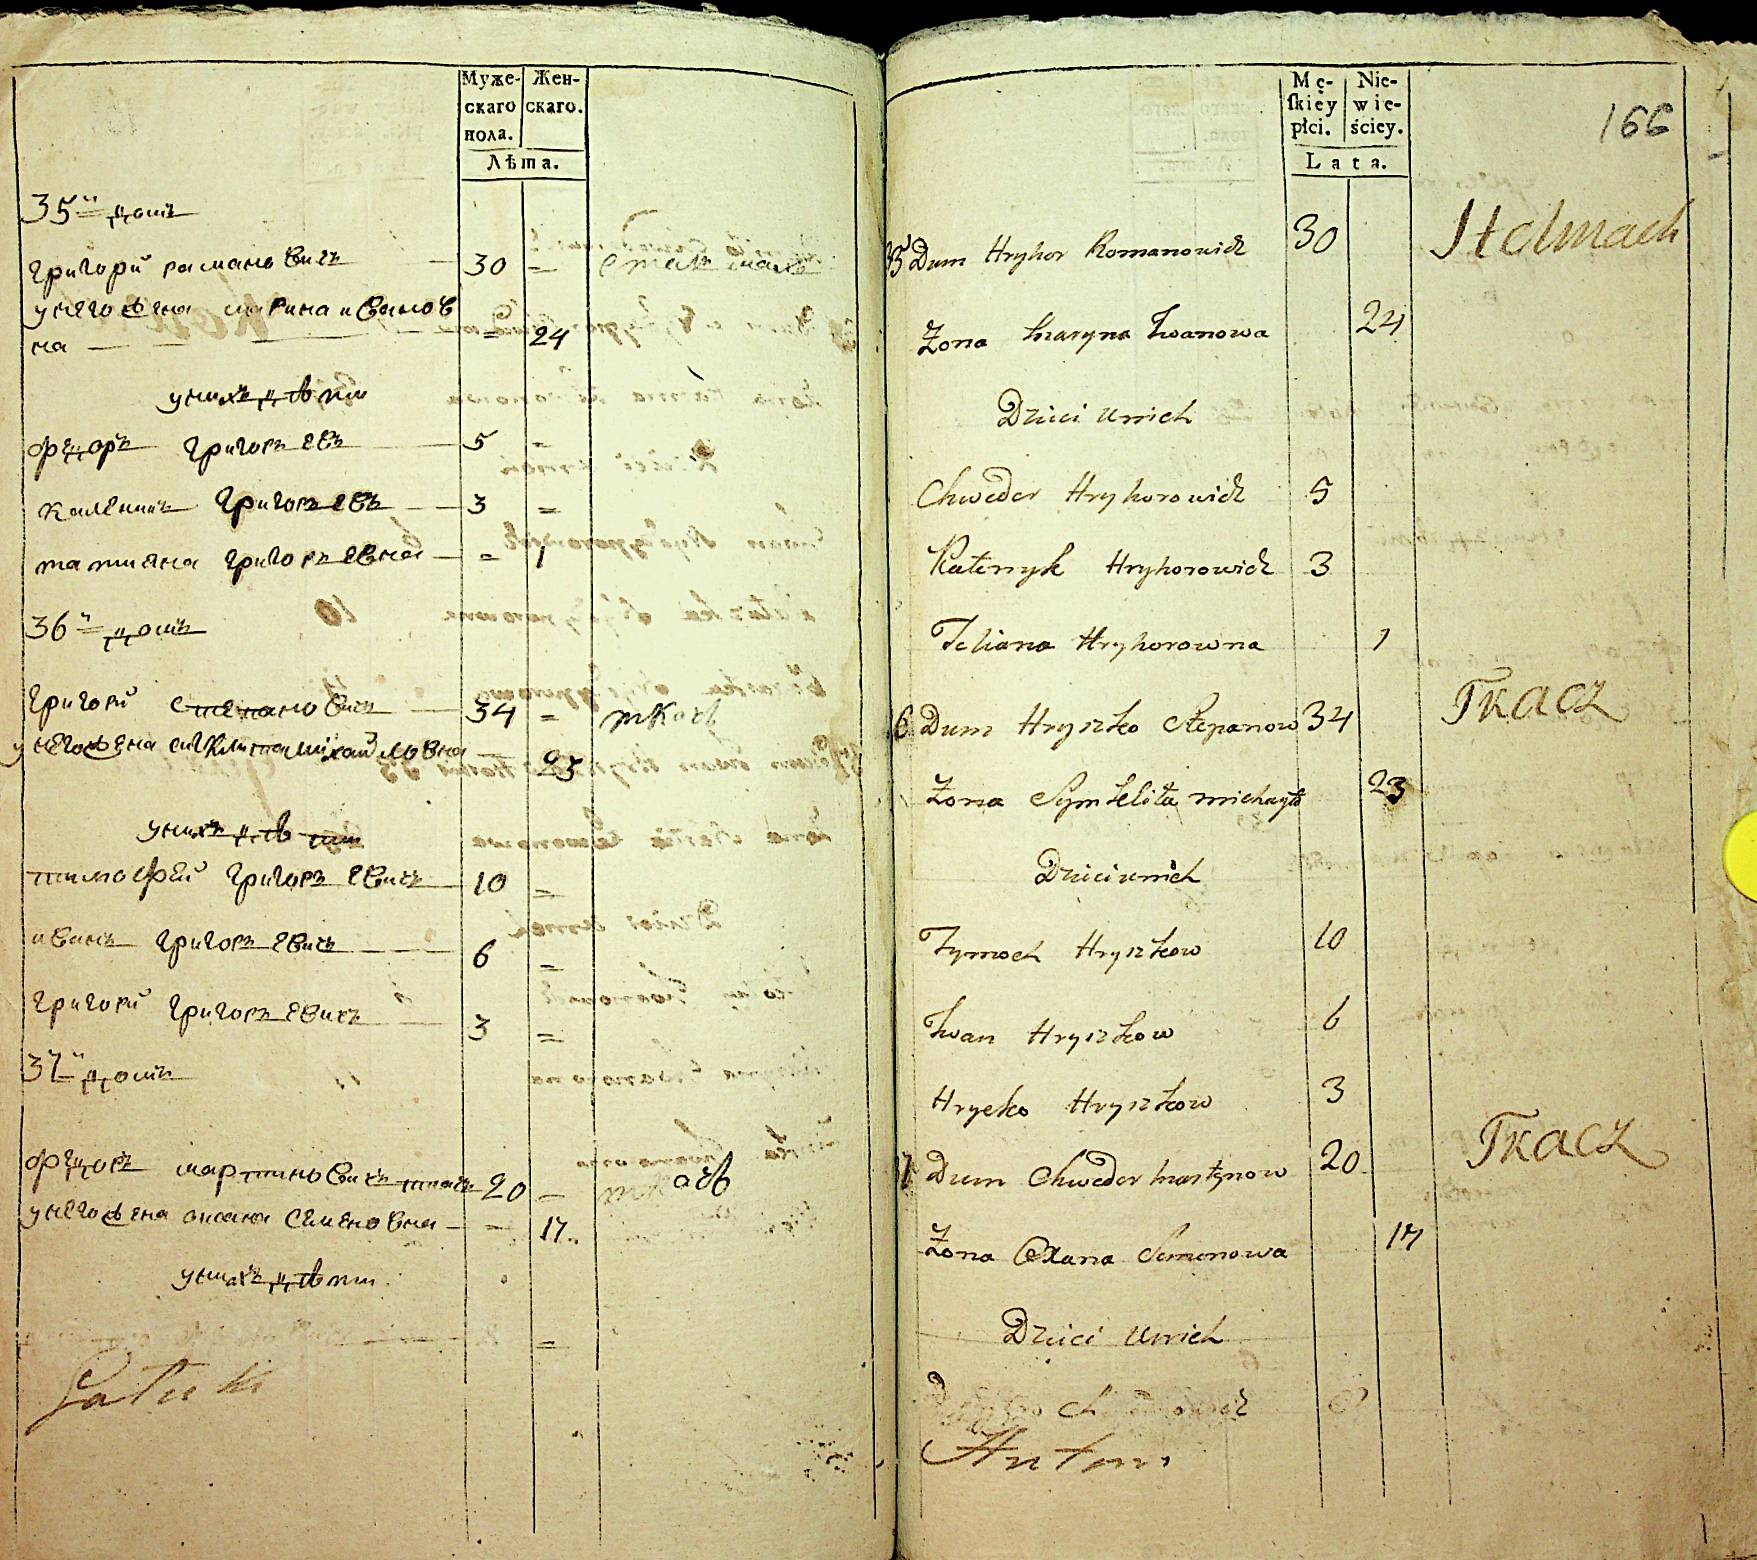 Муже-
скаго
пола.
Жен-
скаго.
Лѣта.
35й домъ
Григорій романовичъ — 30 = стелмахъ
унего жена марина иванов
на — = 24
унихъ дѣти
Ѳедоръ Григорьевъ — 5 =
каленикъ Григорьевъ — 3 =
татияна Григорьевна — = 1
36й домъ
Григорій степановичъ — 34 = ткачь
унего жена михайловна — 23
унихъ дѣти
тимофей Григорьевичъ — 10 =
иванъ Григорьевичъ — 6 =
Григорій Григорьевичъ — 3 =
37й домъ
Ѳедоръ мартиновичъ 20 — ткачь
унего жена оксана семеновна — = 17
унихъ дѣти
=
Mę-
skiey
płci.
Nie-
wie-
ściey.
Lata.
166
35 Dum Hryhor Romanowicz 30 Stelmach
Żona Maryna Iwanowa 24
Dzieci u nich
Chweder Hryhorowicz 5
Kalenyk Hryhorowicz 3
Teliana Hryhorowna 1
6 Dum Hryszko Stepanow 34 Tkacz
Żona Symklita michayło 23
Dzieci u nich
Tymoch Hryszkow 10
Iwan Hryszkow 6
Hrycko Hryszkow 3
7 Dum Chweder Martynow 20 Tkacz
Żona Oxana Semenowa 17
Dzieci u nich
Antoni